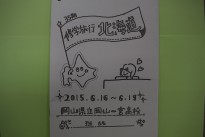 修学旅行 北海道
2015.6.15～6.18
岡山県立岡山一宮高校